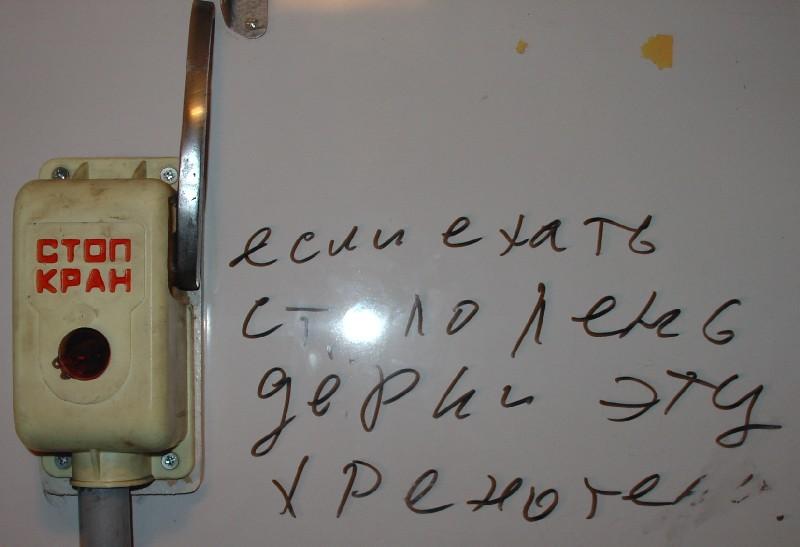 СТОП
КРАН
если ехать
стало лень
дерни эту
хренотень.